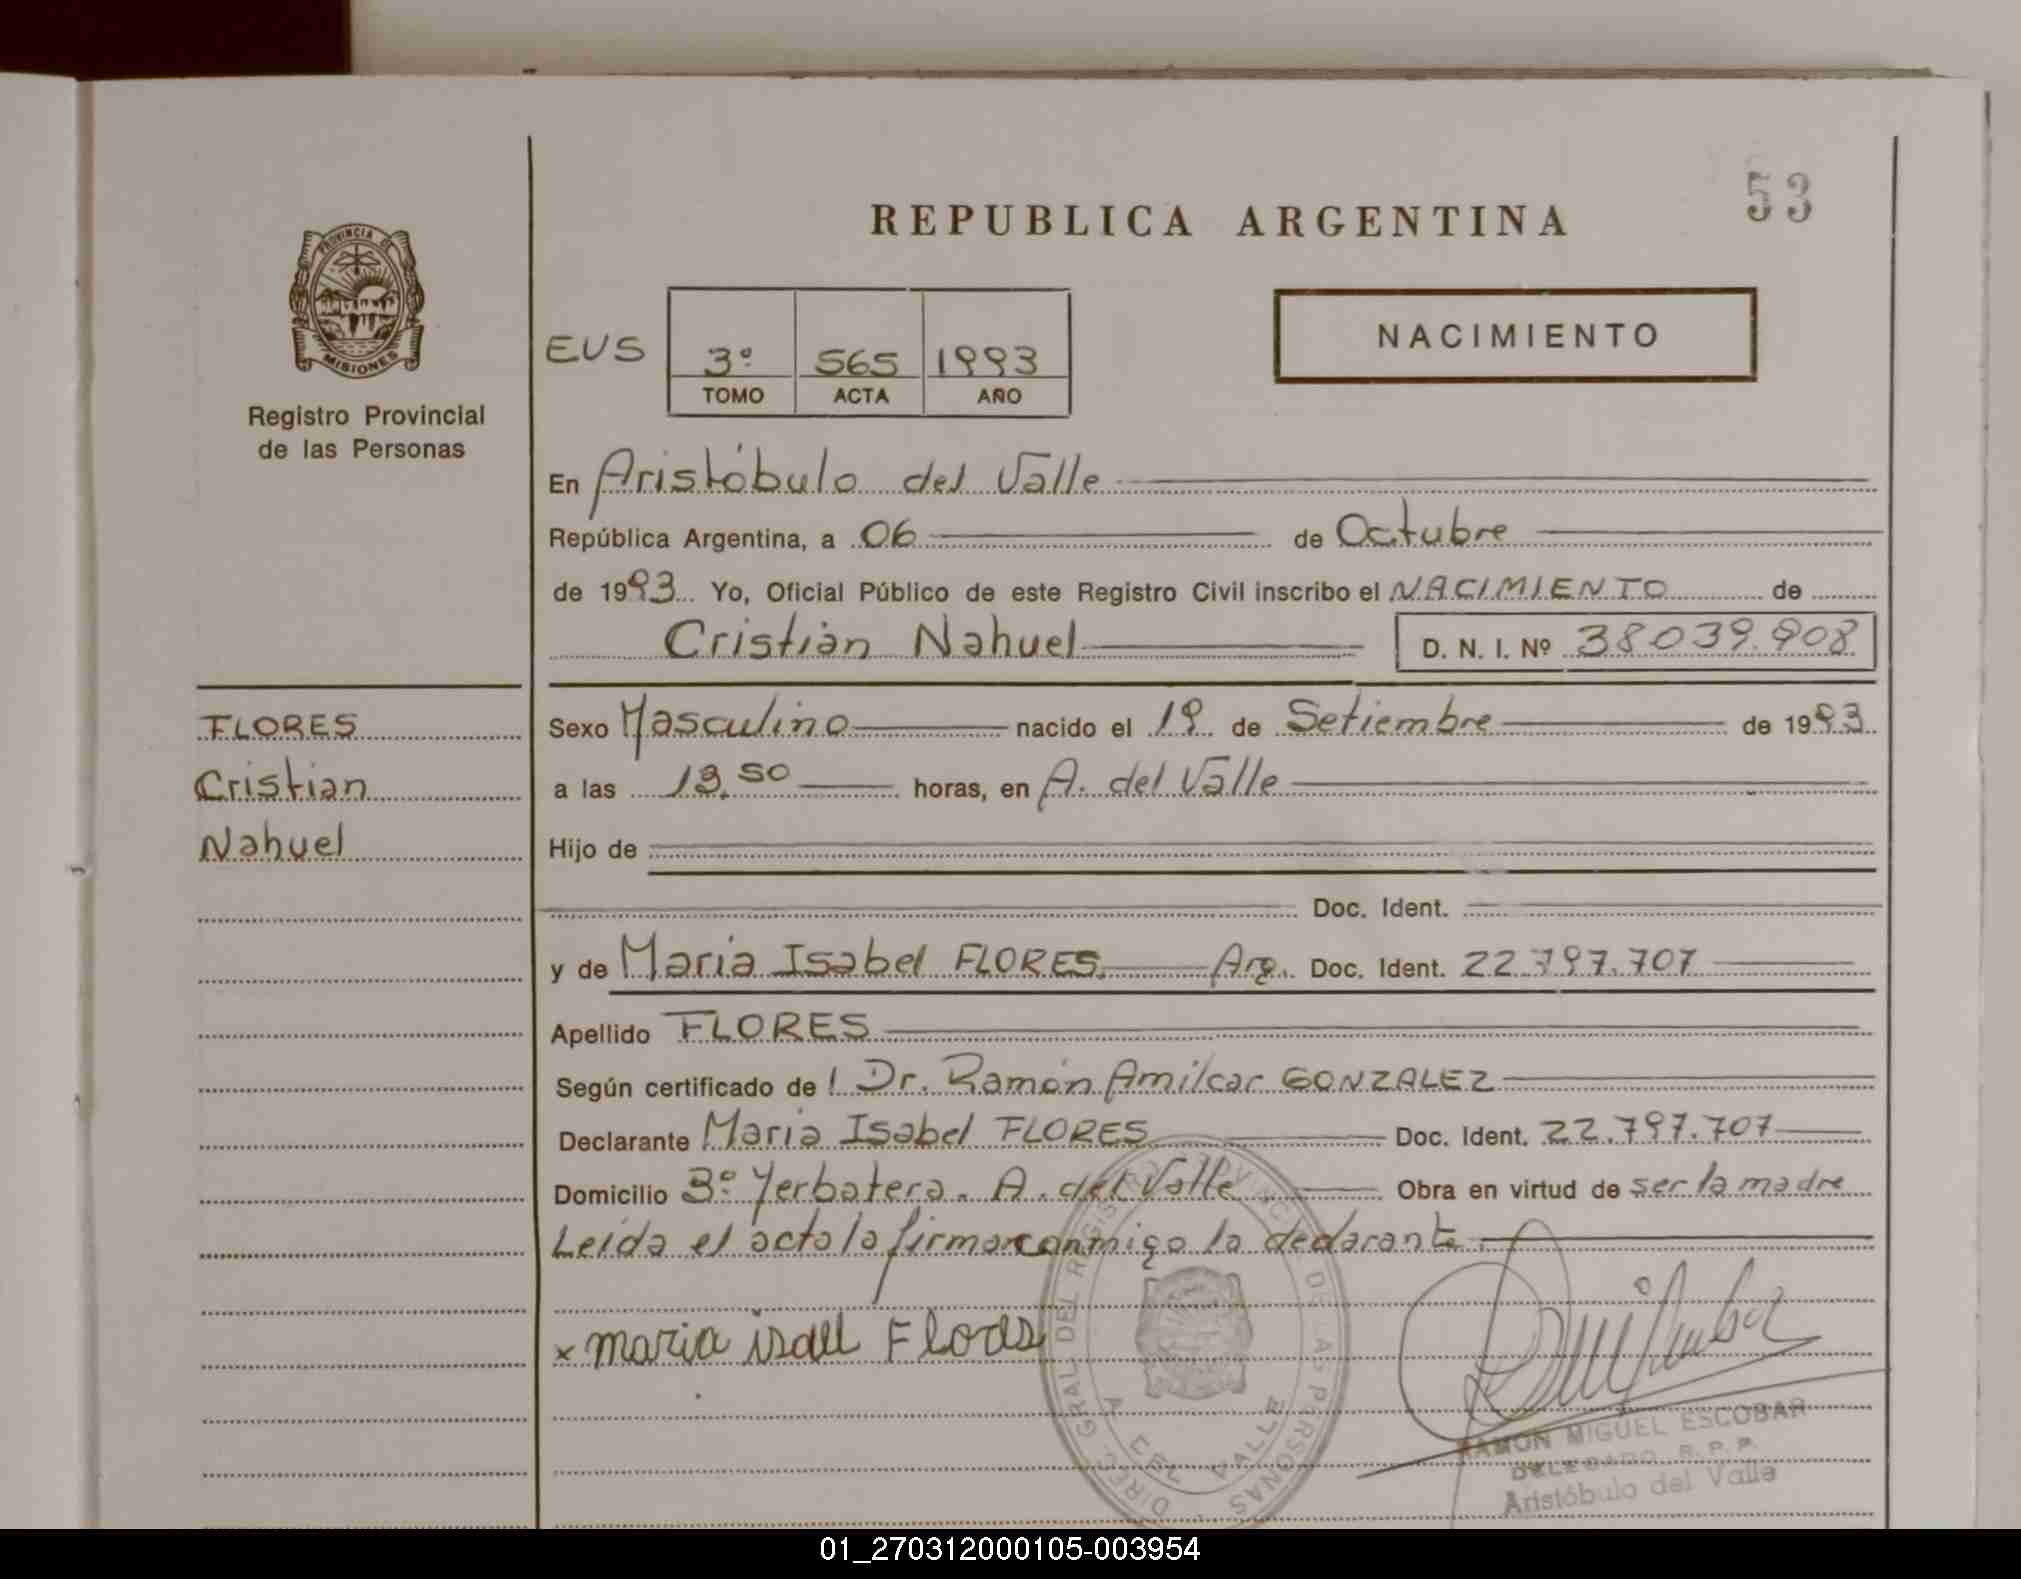 53
REPUBLICA ARGENTINA
PROVINCIA DE
MISIONES
Registro Provincial
de las Personas
NACIMIENTO
EUS
3º 565 1993
TOMO ACTA AÑO
En Aristóbulo del Valle
República Argentina, a 06 de Octubre
de 1993 Yo, Oficial Público de este Registro Civil inscribo el NACIMIENTO de
Cristian Nahuel D. N. I. Nº 38039.908
FLORES
Cristian
Nahuel
Sexo Masculino nacido el 19 de Setiembre de 1993
a las 13,50 horas, en A. del Valle
Hijo de
Doc. Ident.
y de Maria Isabel FLORES Arg. Doc. Ident. 22.797.707
Apellido FLORES
Según certificado de l Dr. Ramón Amilcar GONZALEZ
Declarante Maria Isabel FLORES Doc. Ident. 22.797.707
Domicilio 3º Yerbatera. A. del Valle Obra en virtud de ser la madre
Leída el acta la firma conmigo la declarante.
x maria isael Flores
DIREC. GRAL DEL REGISTRO PROVINCIAL DE LAS PERSONAS
A. DEL VALLE
RAMON MIGUEL ESCOBAR
DELEGADO R. P. P.
Aristóbulo del Valle
01_270312000105-003954